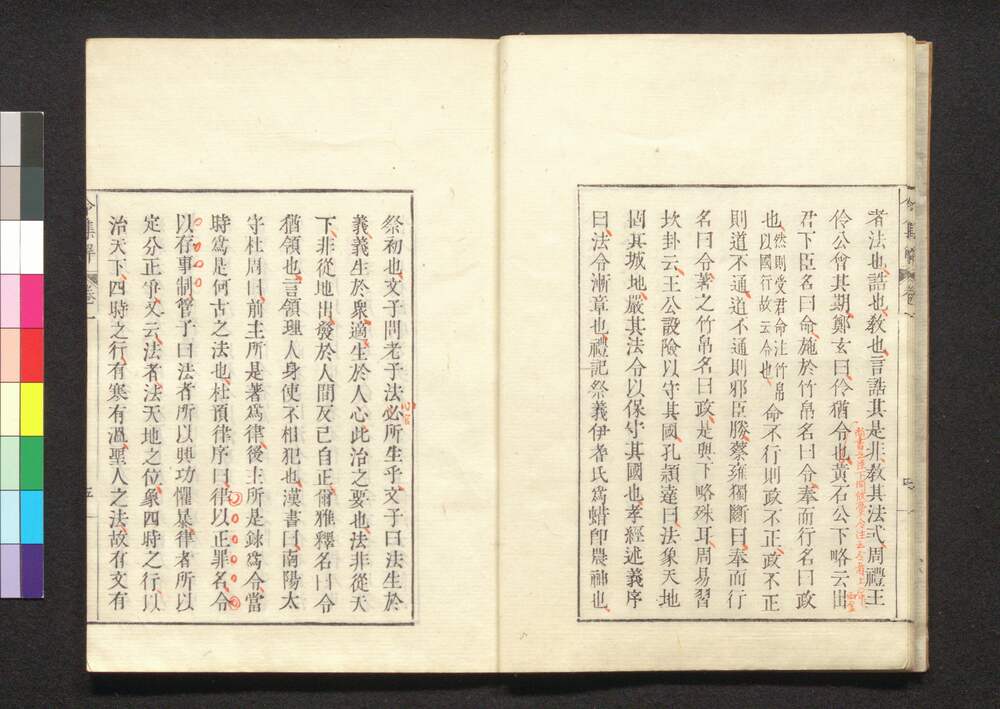 者法也誥也敎也言誥其是非敎其法式周禮王
伶公會其期鄭玄曰伶猶令也黃石公下略云出
君下臣名曰命施於竹帛名曰令奉而行名曰政
也然則受君命注竹帛以國行故云令也命不行則政不正政不正
則道不通道不通則邪臣勝蔡雍獨斷曰奉而行
名曰令著之竹帛名曰政是與下略殊耳周易習
坎卦云王公設險以守其國孔頴達曰法象天地
固其城地嚴其法令以保守其國也孝經述義序
曰法令漸章也禮記祭義伊耆氏爲蜡卽農神也
令集解 卷一
祭初也文子問老子法必所生乎文子曰法生於
義義生於衆適生於人心此治之要也法非從天
下非從地出發於人間反己自正爾雅釋名曰令
猶領也言領理人身使不相犯也漢書曰南陽太
守杜周曰前主所是著爲律後主所是錄爲令當
時爲是何古之法也杜預律序曰律以正罪名令
以存事制管子曰法者所以興功懼暴律者所以
定分正爭又云法者法天地之位象四時之行以
治天下四時之行有寒有溫聖人之法故有文有
令集解 卷一